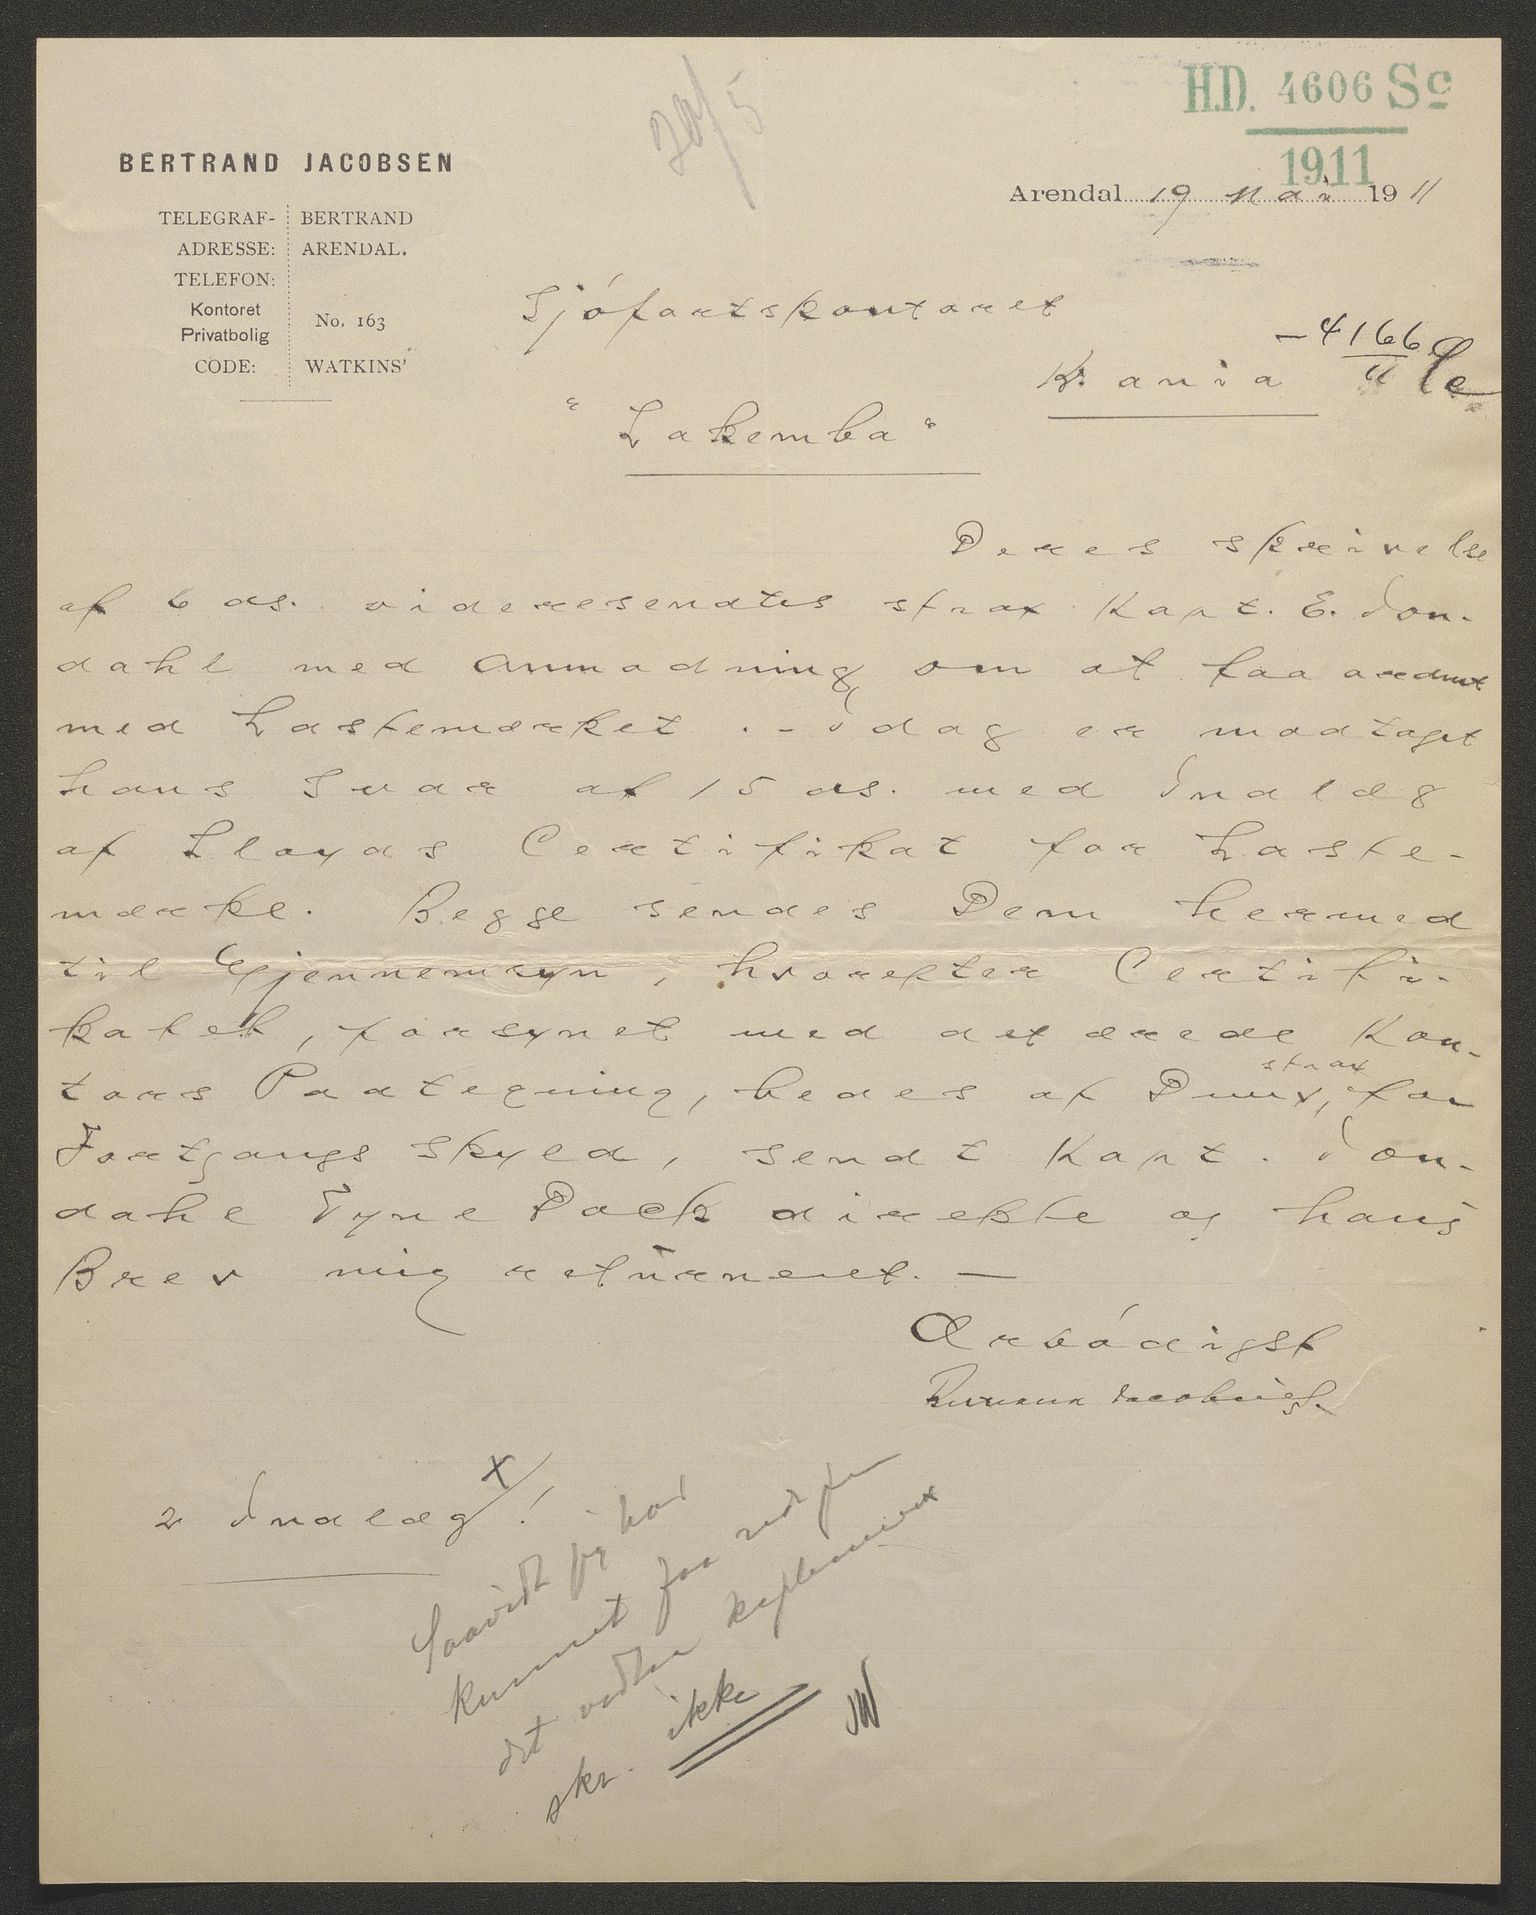 20/5
H.D. 4606 Sc
1911
BERTRAND JACOBSEN
TELEGRAF-ADRESSE: BERTRAND ARENDAL.
TELEFON:
Kontoret
Privatbolig No. 163
CODE: WATKINS'
Arendal 19 Mai 1911
Sjófartskontoret
Kr.ania
4166
11
"Lakemba"
Deres skrivelse
af 6 ds. videresendtes strax Kapt. E. Jon-
dahl med Anmodning om at faa ordnet
med Lastemærket. - Idag er modtaget
hans Svar af 15 ds. med Indlæg
af Lloyds Certifikat for Laste-
mærke. Begge sendes Dem hermed
til Gjennemsyn, hvorefter Certifi-
katet, forsynet med det ærede Kon-
tors Paategning, bedes af Dem strax, for
Fortgangs Skyld, sendt Kapt. Jon-
dahl Tyne Dock direkte og hans
Brev mig returneret. —
Ærbódigst
Bertrand Jacobsen
2 Indlæg x!
Saavidt jeg har
kunnet faa rede paa
det vedtar
skr. ikke
JW